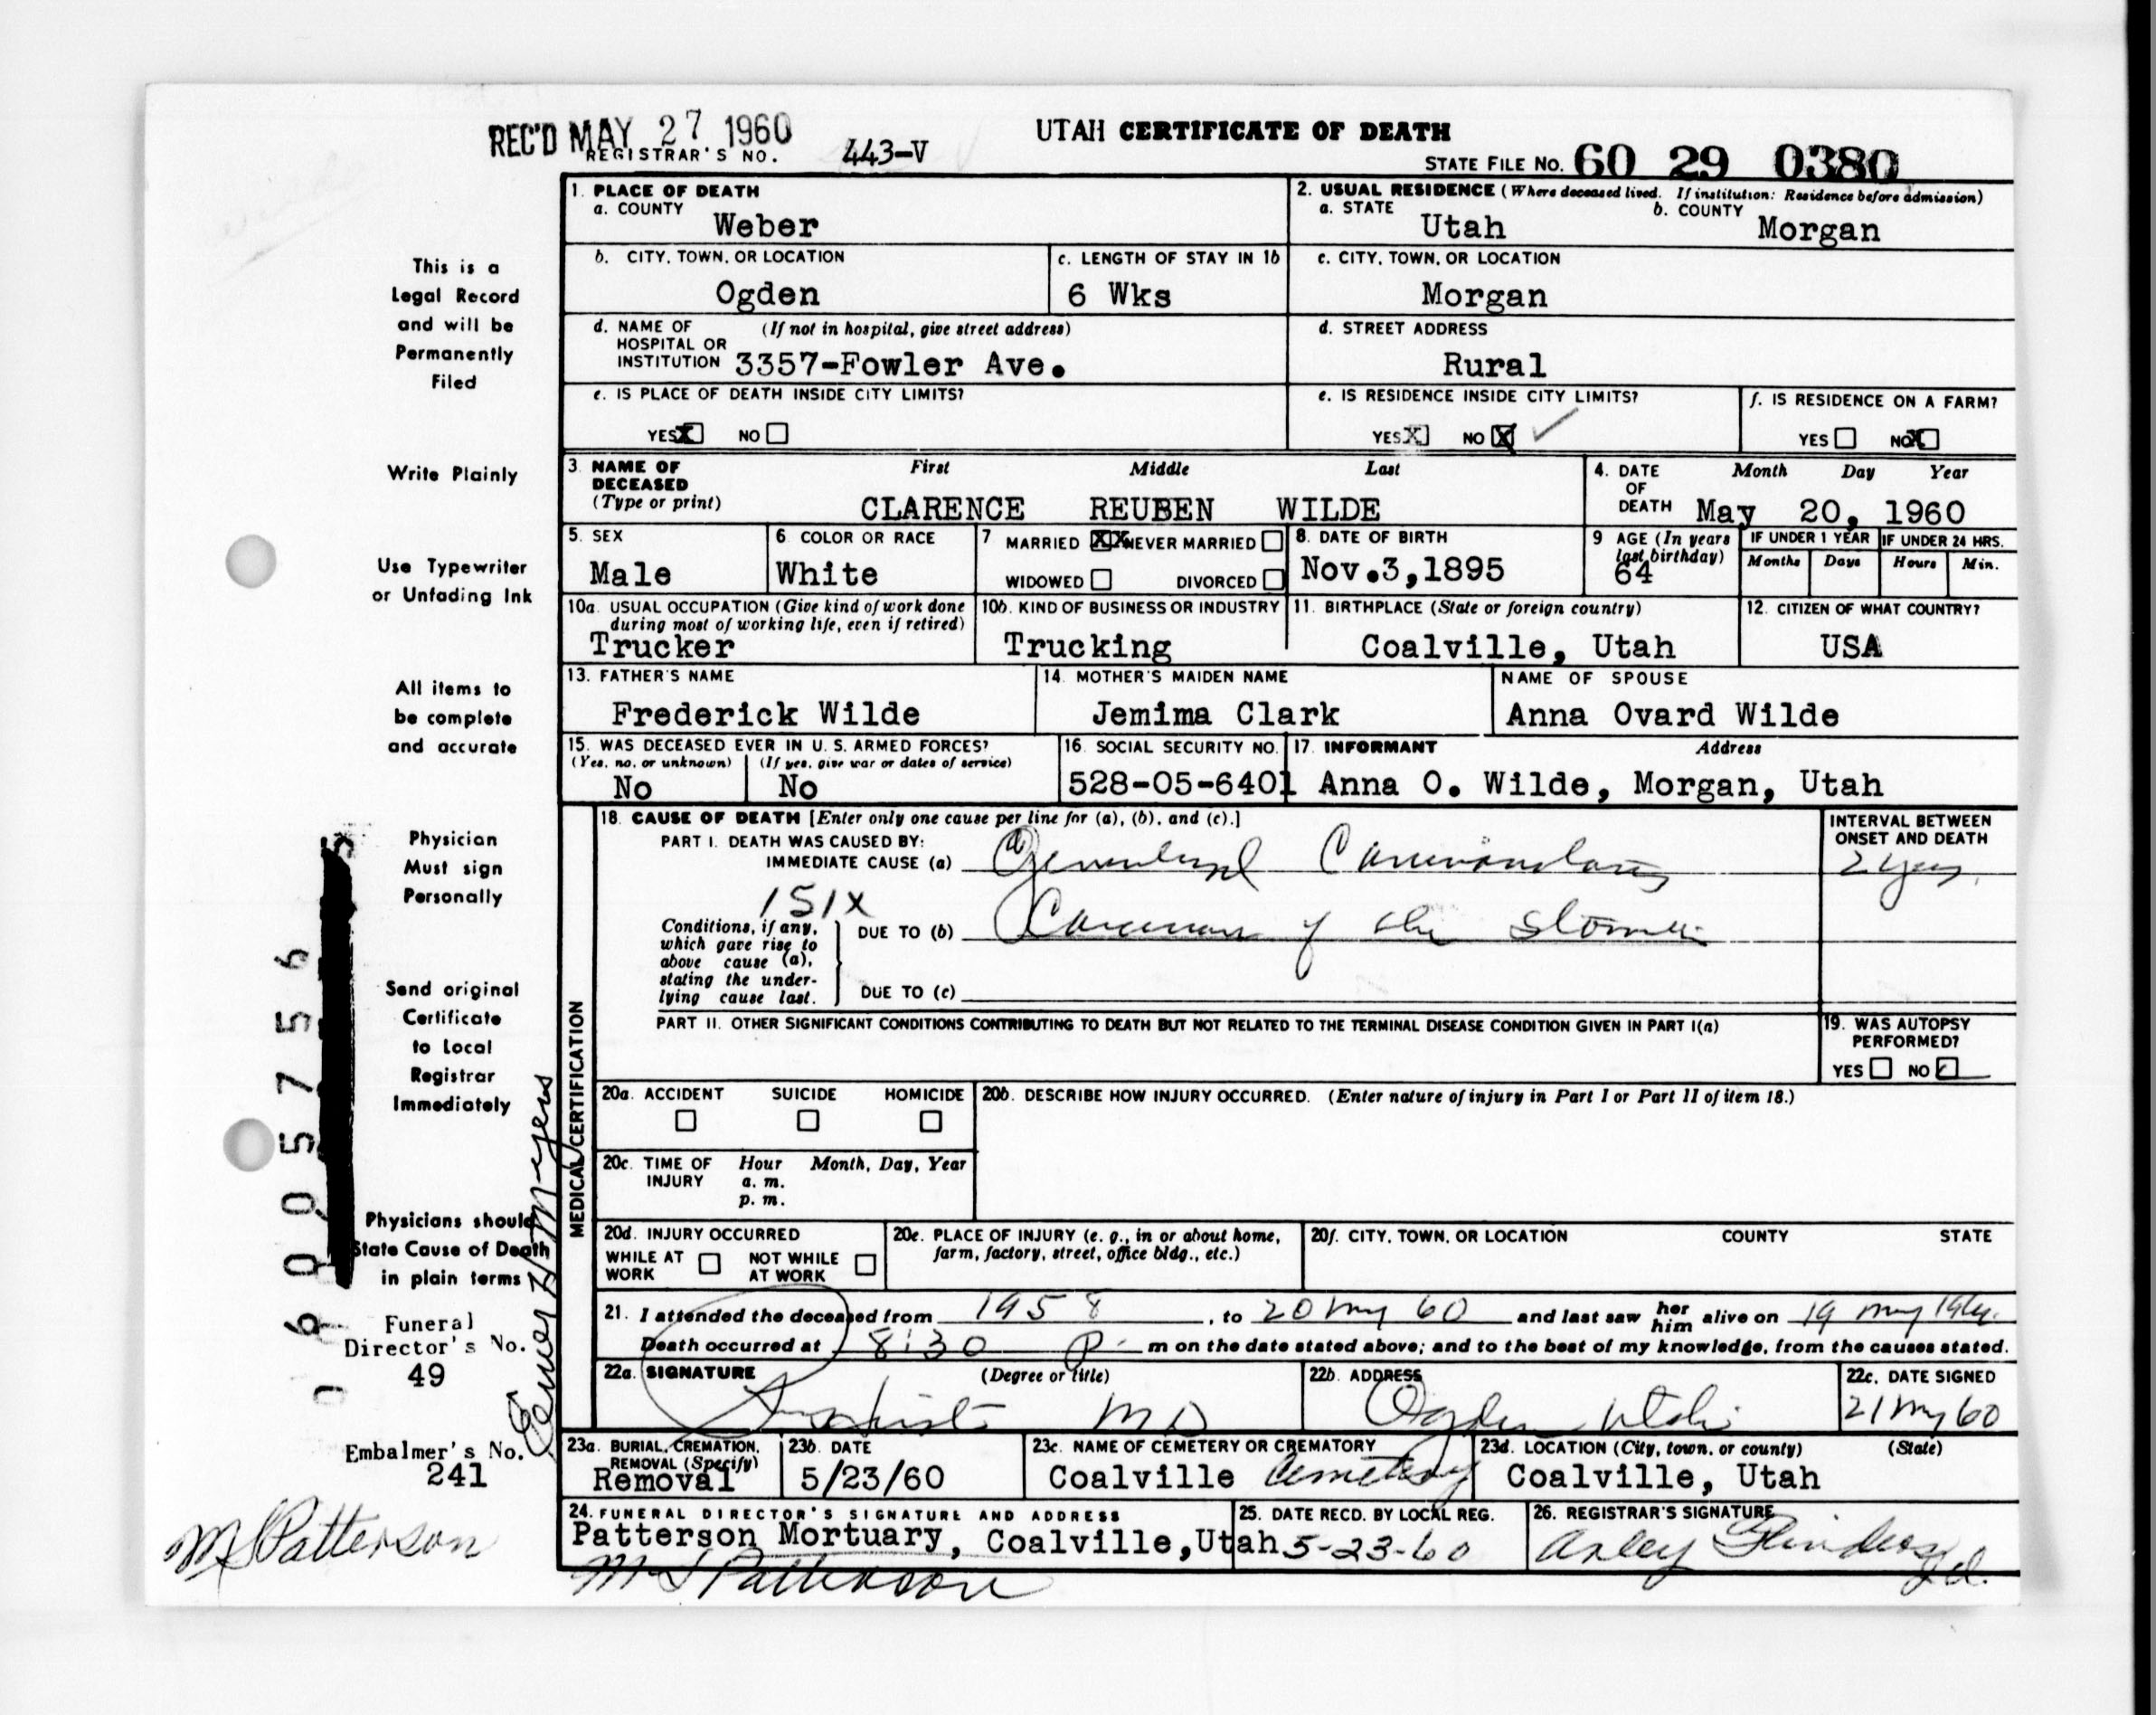 REC'D MAY 27 1960
REGISTRAR'S NO. 443-V
UTAH CERTIFICATE OF DEATH
STATE FILE NO. 60 29 0380
This is a
Legal Record
and will be
Permanently
Filed
Write Plainly
Use Typewriter
or Unfading Ink
All items to
be complete
and accurate
Physician
Must sign
Personally
Send original
Certificate
to Local
Registrar
Immediately
Physicians should
State Cause of Death
in plain terms
Funeral
Director's No.
49
Embalmer's No.
241
M S Patterson
1. PLACE OF DEATH
a. COUNTY
Weber
2. USUAL RESIDENCE (Where deceased lived. If institution: Residence before admission)
a. STATE b. COUNTY
Utah Morgan
b. CITY, TOWN, OR LOCATION
Ogden
c. LENGTH OF STAY IN 1b
6 Wks
c. CITY, TOWN, OR LOCATION
Morgan
d. NAME OF (If not in hospital, give street address)
HOSPITAL OR
INSTITUTION 3357-Fowler Ave.
d. STREET ADDRESS
Rural
e. IS PLACE OF DEATH INSIDE CITY LIMITS?
YES X NO
e. IS RESIDENCE INSIDE CITY LIMITS?
YES X NO X
f. IS RESIDENCE ON A FARM?
YES NO X
3. NAME OF
DECEASED
(Type or print)
First Middle Last
CLARENCE REUBEN WILDE
4. DATE Month Day Year
OF
DEATH May 20, 1960
5. SEX
Male
6. COLOR OR RACE
White
7 MARRIED XX NEVER MARRIED
WIDOWED DIVORCED
8. DATE OF BIRTH
Nov.3,1895
9 AGE (In years
last birthday)
64
IF UNDER 1 YEAR IF UNDER 24 HRS.
Months Days Hours Min.
10a. USUAL OCCUPATION (Give kind of work done
during most of working life, even if retired)
Trucker
10b. KIND OF BUSINESS OR INDUSTRY
Trucking
11. BIRTHPLACE (State or foreign country)
Coalville, Utah
12. CITIZEN OF WHAT COUNTRY?
USA
13. FATHER'S NAME
Frederick Wilde
14. MOTHER'S MAIDEN NAME
Jemima Clark
NAME OF SPOUSE
Anna Ovard Wilde
15. WAS DECEASED EVER IN U. S. ARMED FORCES?
(Yes, no, or unknown) (If yes, give war or dates of service)
No No
16. SOCIAL SECURITY NO.
528-05-6401
17. INFORMANT Address
Anna O. Wilde, Morgan, Utah
MEDICAL CERTIFICATION
18. CAUSE OF DEATH [Enter only one cause per line for (a), (b), and (c).]
PART I. DEATH WAS CAUSED BY:
IMMEDIATE CAUSE (a)
INTERVAL BETWEEN
ONSET AND DEATH
151X
Conditions, if any,
which gave rise to
above cause (a),
stating the under-
lying cause last.
DUE TO (b) Carcinoma of the stomach
DUE TO (c)
PART II. OTHER SIGNIFICANT CONDITIONS CONTRIBUTING TO DEATH BUT NOT RELATED TO THE TERMINAL DISEASE CONDITION GIVEN IN PART I(a)
19. WAS AUTOPSY
PERFORMED?
YES NO
20a. ACCIDENT SUICIDE HOMICIDE
20b. DESCRIBE HOW INJURY OCCURRED. (Enter nature of injury in Part I or Part II of item 18.)
20c. TIME OF Hour Month, Day, Year
INJURY a. m.
p. m.
20d. INJURY OCCURRED
WHILE AT NOT WHILE
WORK AT WORK
20e. PLACE OF INJURY (e. g., in or about home,
farm, factory, street, office bldg., etc.)
20f. CITY, TOWN, OR LOCATION COUNTY STATE
21. I attended the deceased from 1958, to 20 May 60 and last saw her him alive on 19 May
Death occurred at 8:30 P. m on the date stated above; and to the best of my knowledge, from the causes stated.
22a. SIGNATURE (Degree or title)
MD
22b. ADDRESS
Ogden Utah
22c. DATE SIGNED
21 May 60
23a. BURIAL, CREMATION,
REMOVAL (Specify)
Removal
23b. DATE
5/23/60
23c. NAME OF CEMETERY OR CREMATORY
Coalville Cemetery
23d. LOCATION (City, town, or county) (State)
Coalville, Utah
24. FUNERAL DIRECTOR'S SIGNATURE AND ADDRESS
Patterson Mortuary, Coalville,Utah
M S Patterson
25. DATE RECD. BY LOCAL REG.
5-23-60
26. REGISTRAR'S SIGNATURE